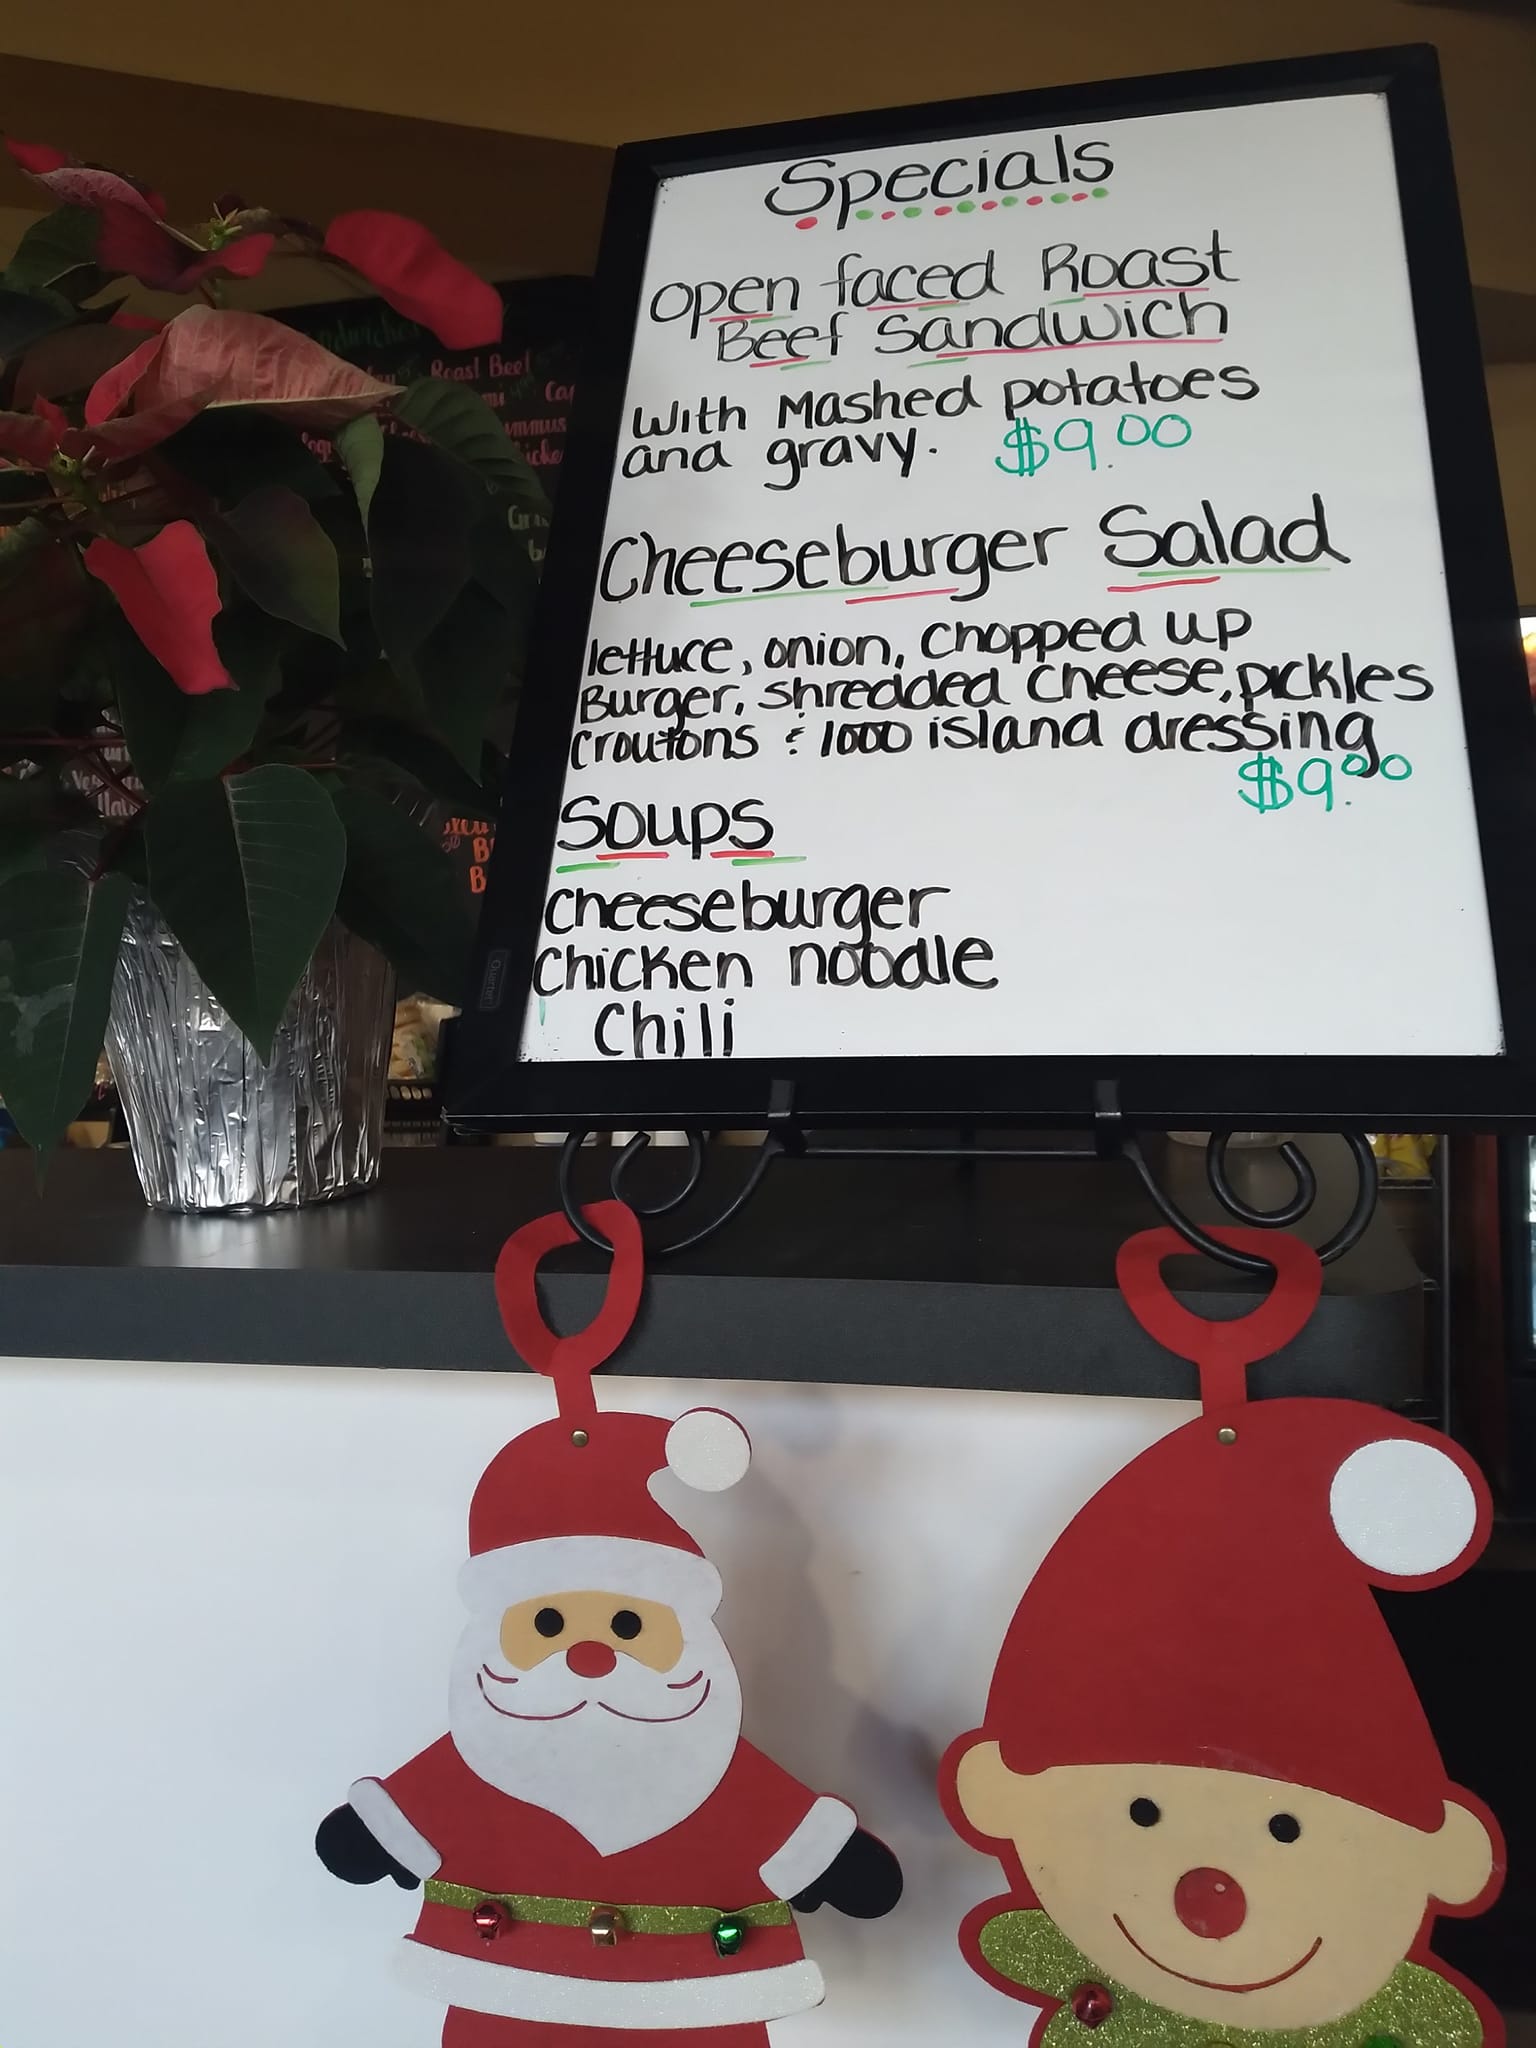 Specials
Open faced Roast
Beef Sandwich
With Mashed potatoes
and gravy. $9.00
Cheeseburger Salad
lettuce, onion, chopped up
Burger, shredded cheese, pickles
croutons & 1000 island dressing
$9.00
Soups
cheeseburger
chicken noodle
Chili
Quartet
Roast Beef